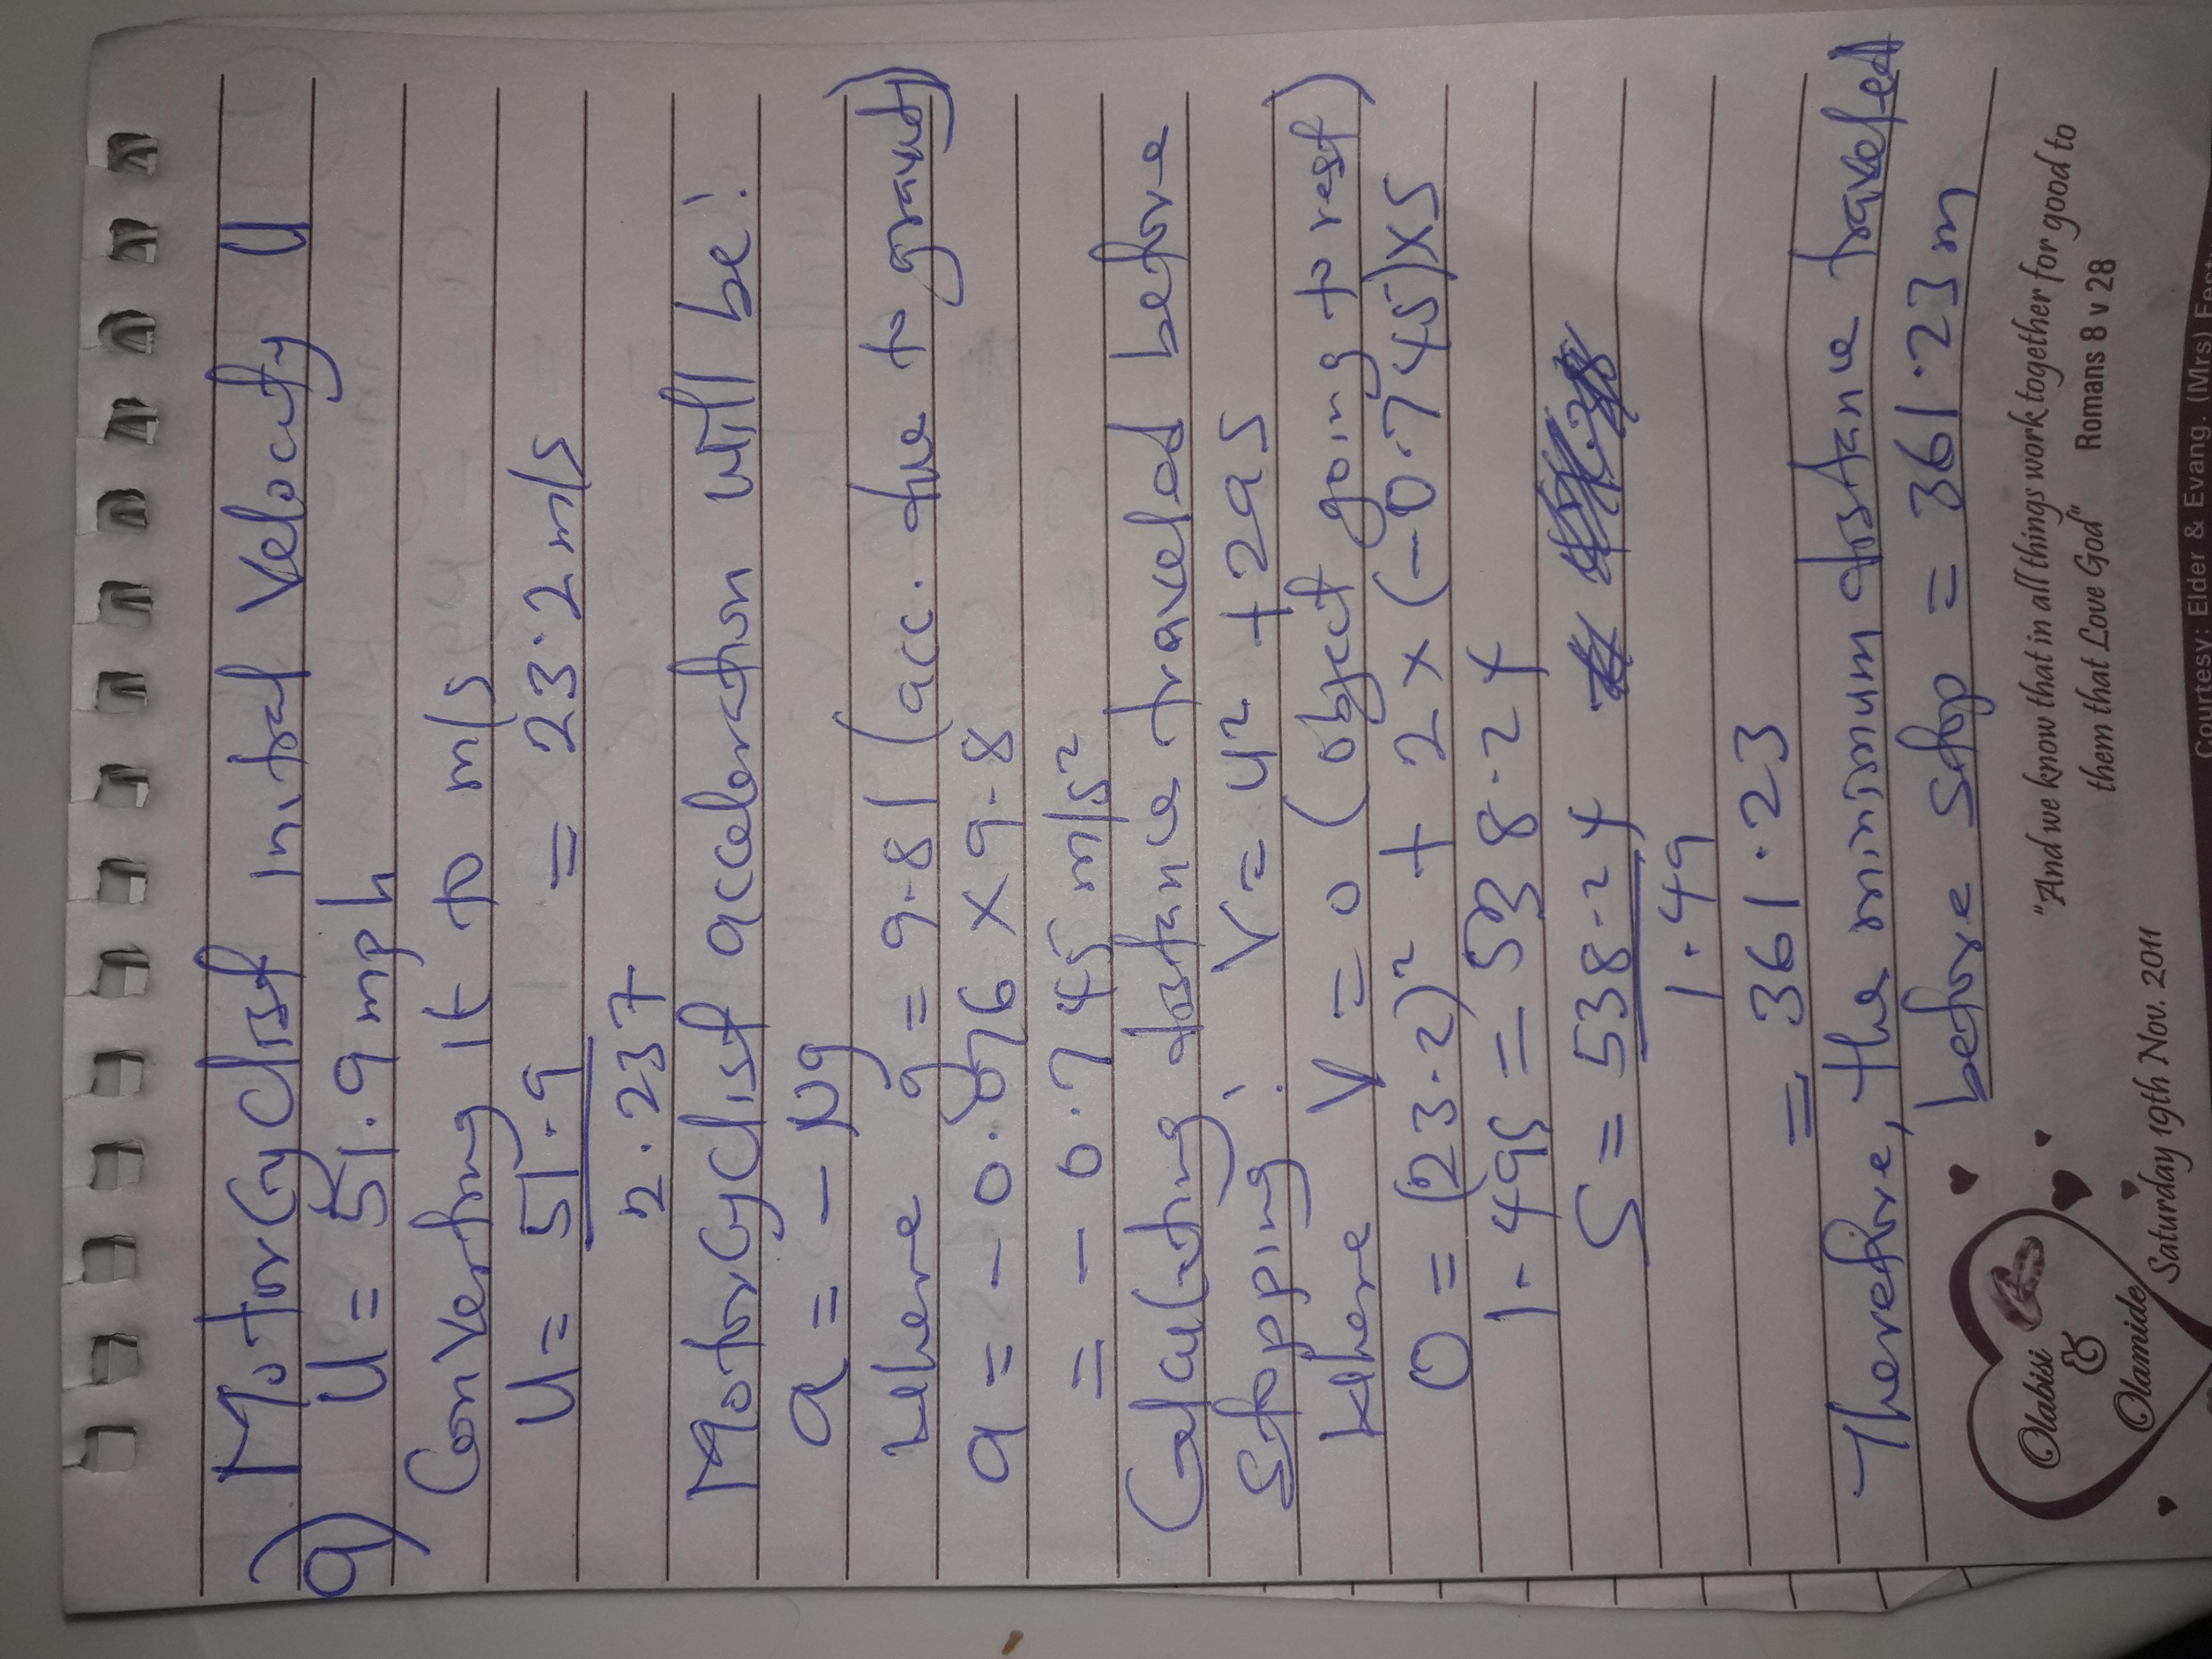 Motorcyclist initial velocity U
a) U = 51.9 mph
Converting it to m/s
U = 51.9 = 23.2 m/s
2.237
Motorcyclist acceleration will be:
a = -Ng
where g = 9.81 (acc. due to gravity)
a = -0.076 x 9.8
= -0.745 m/s²
Calculating distance traveled before
stopping; V = U² + 2as
where V = 0 (object going to rest)
0 = (23.2)² + 2x(-0.745)xS
1.49S = 538.24
S = 538.24
1.49
= 361.23
Therefore, the minimum distance traveled
before stop = 361.23m
Olabisi
&
Olamide
Saturday 19th Nov. 2011
"And we know that in all things work together for good to
them that Love God" Romans 8 v 28
Courtesy: Elder & Evang. (Mrs)